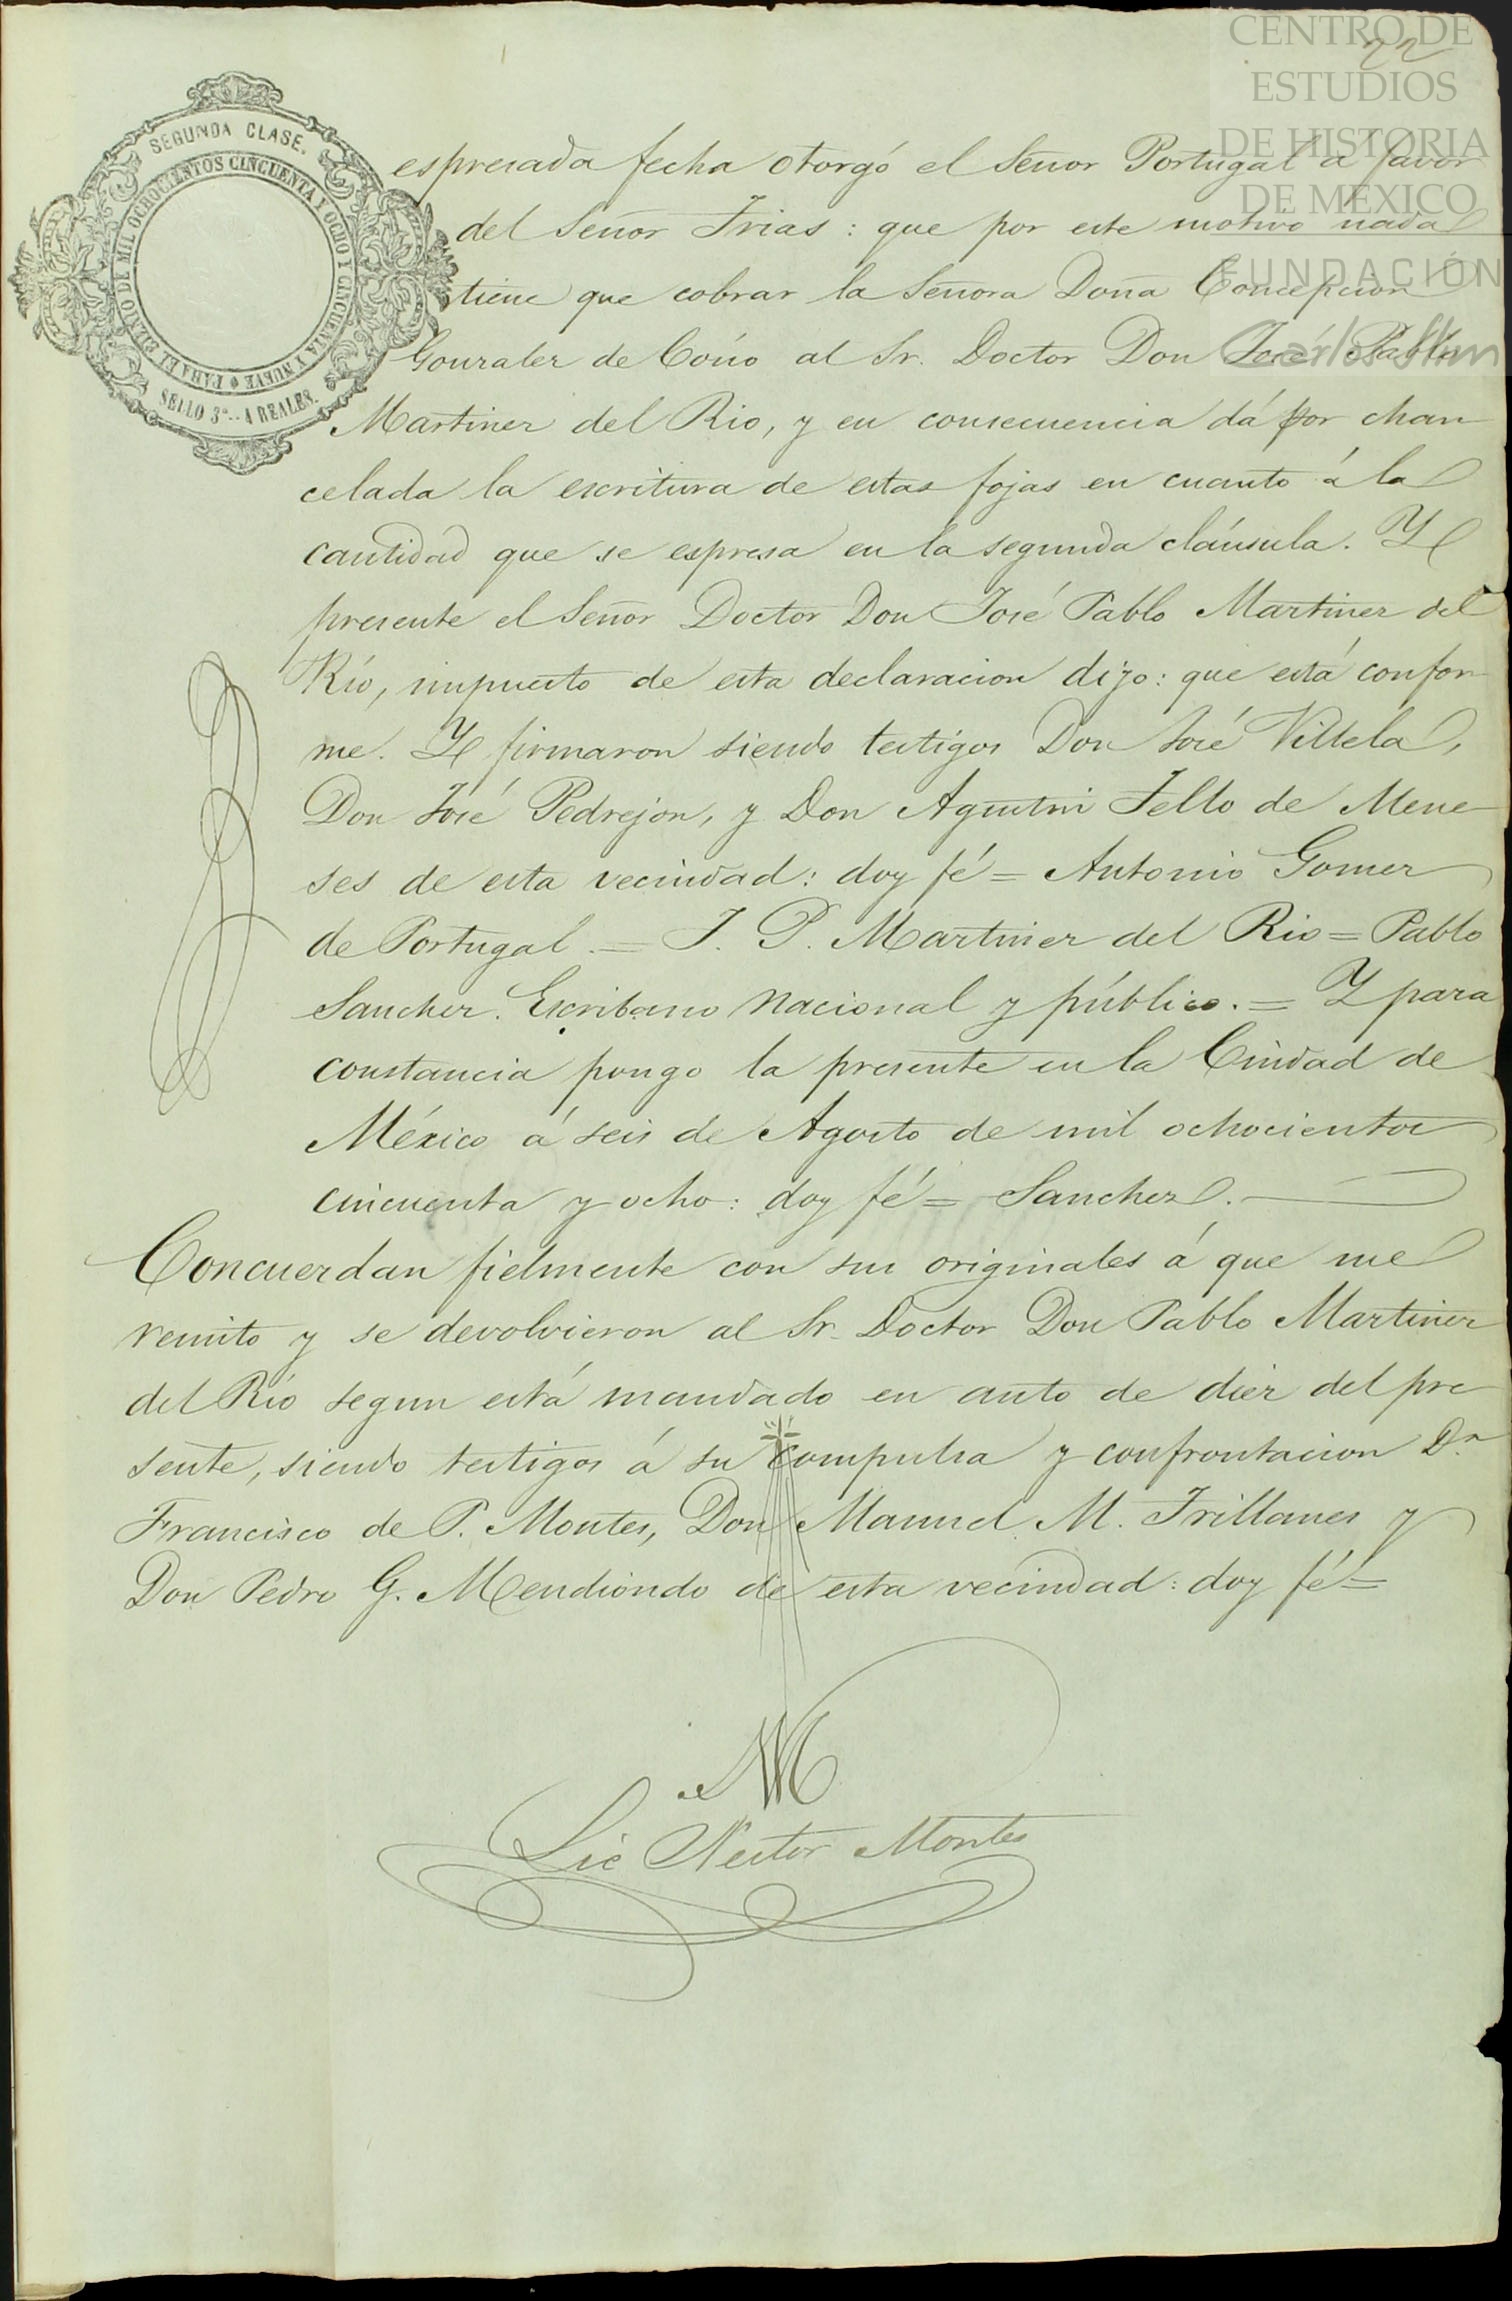 CENTRO DE
ESTUDIOS
DE HISTORIA
DE MÉXICO
FUNDACIÓN
Carlos Slim
22
SEGUNDA CLASE.
PARA EL BIENO DE MIL OCHOCIENTOS CINCUENTA Y OCHO Y CINCUENTA Y NUEVE
SELLO 3º. 4 REALES.
espresada fecha otorgó el Señor Portugal a favor
del Señor Frias: que por este motivo nada
tiene que cobrar la Señora Doña Concepcion
Gonzalez de Cosío al Sr. Doctor Don José Pablo
Martinez del Rio, y en consecuencia dá por chan
celada la escritura de estas fojas en cuanto á la
cantidad que se espresa en la segunda cláusula. Y
presente el Señor Doctor Don José Pablo Martinez del
Río, impuesto de esta declaracion dijo: que está confor
me. Y firmaron siendo testigos Don José Villela,
Don José Pedrejon, y Don Agustin Tello de Mene
ses de esta vecindad: doy fé = Antonio Gomez
de Portugal. = J. P. Martinez del Rio = Pablo
Sanchez. Escribano Nacional y público. = Y para
constancia pongo la presente en la Ciudad de
México á seis de Agosto de mil ochocientos
cincuenta y ocho: doy fé = Sanchez.
Concuerdan fielmente con sus originales á que me
remito y se devolvieron al Sr. Doctor Don Pablo Martinez
del Río segun está mandado en auto de diez del pre
sente, siendo testigos á su compulsa y confrontacion Dn
Francisco de P. Montes, Don Manuel M. Trillanes y
Don Pedro G. Mendiondo de esta vecindad: doy fé =
Lic Nestor Montes